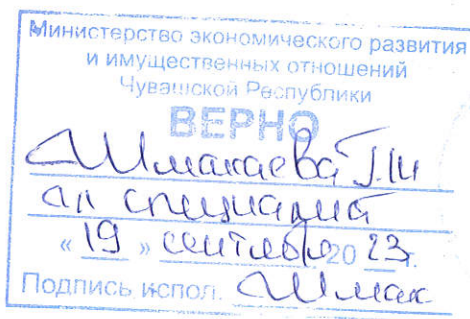 Министерство экономического развития
и имущественных отношений
Чувашской Республики
ВЕРНО
Шмакаева
специалист
« 19 » сентября 20 23 г.
Подпись испол. Шмак